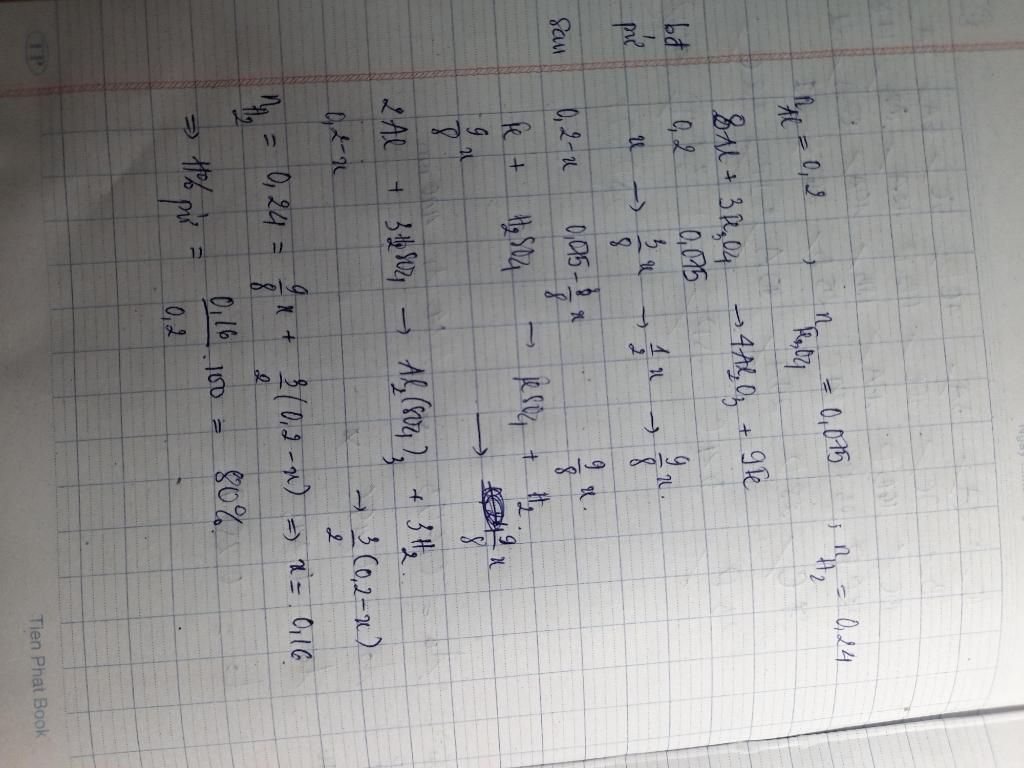 n Al = 0,2 , n Fe₃O₄ = 0,075 ; n H₂ = 0,24
8Al + 3Fe₃O₄ → 4Al₂O₃ + 9Fe
bđ 0,2 0,075
pứ x → 3/8 x → 1/2 x → 9/8 x.
sau 0,2-x 0,075 - 3/8 x 9/8 x.
Fe + H₂SO₄ → FeSO₄ + H₂.
9/8 x → 9/8 x
2Al + 3H₂SO₄ → Al₂(SO₄)₃ + 3H₂.
0,2-x → 3/2 (0,2-x)
n H₂ = 0,24 = 9/8 x + 3/2 (0,2-x) => x = 0,16.
=> H% pứ = 0,16/0,2 . 100 = 80%
TP
Tien Phat Book